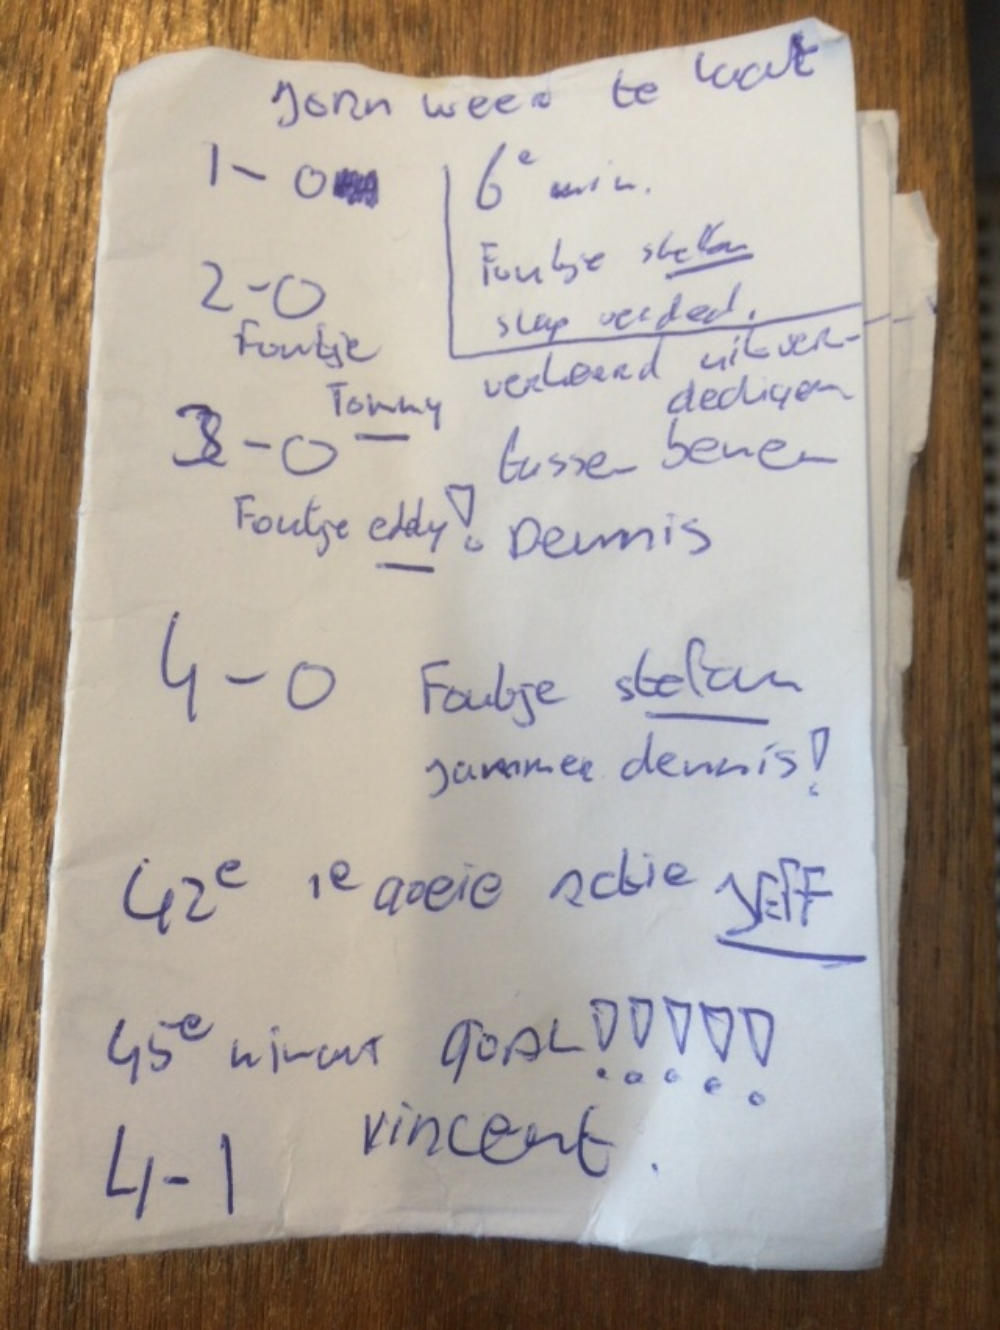 Jorn weer te laat
1-0
6e min.
Foutje stefan
slap verded.
2-0
Foutje
Tommy
verkeerd uitver-
dedigen
3-0
tussen benen
Foutje eddy! Dennis
4-0 Foutje stefan
jammer dennis!
42e 1e goeie actie JEFF
45e minuut GOAL!!!!!
4-1 Vincent.